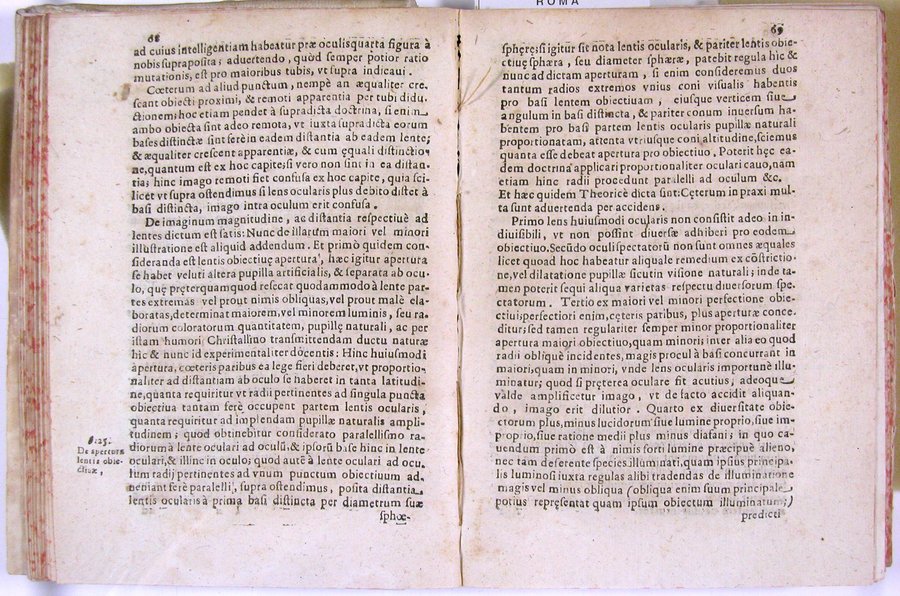 ROMA
68
ad cuius intelligentiam habeatur præ oculis quarta figura à
nobis supraposita; aduertendo, quòd semper potior ratio
mutationis, est pro maioribus tubis, vt supra indicaui.
Cœterum ad aliud punctum, nempè an æqualiter cre-
scant obiecti proximi, & remoti apparentia per tubi didu-
ctionem; hoc etiam pendet à supradicta doctrina, si enim
ambo obiecta sint adeo remota, vt iuxta supradicta eorum
bases distinctæ sint ferè in eadem distantia ab eadem lente;
& æqualiter crescent apparentiæ, & cum equali distinctio-
ne, quantum est ex hoc capite; si vero non sint in ea distan-
tia; hinc imago remoti fiet confusa ex hoc capite, quia sci-
licet vt supra ostendimus si lens ocularis plus debito distet à
basi distincta, imago intra oculum erit confusa.
De imaginum magnitudine, ac distantia respectiuè ad
lentes dictum est satis: Nunc de illarum maiori vel minori
illustratione est aliquid addendum. Et primò quidem con-
sideranda est lentis obiectiuę apertura, hæc igitur apertura
se habet veluti altera pupilla artificialis, & separata ab ocu-
lo, quę pręterquamquod resecat quodammodo à lente par-
tes extremas vel prout nimis obliquas, vel prout malè ela-
boratas, determinat maiorem, vel minorem luminis, seu ra-
diorum coloratorum quantitatem, pupillę naturali, ac per
istam humori Christallino transmittendam ductu naturæ
hic & nunc id experimentaliter docentis: Hinc huiusmodi
apertura, cœteris paribus ea lege fieri deberet, vt proportio-
naliter ad distantiam ab oculo se haberet in tanta latitudi-
ne, quanta requiritur vt radij pertinentes ad singula puncta
obiectiua tantam ferè occupent partem lentis ocularis,
quanta requiritur ad implendam pupillæ naturalis ampli-
tudinem; quod obtinebitur considerato parallelismo ra-
diorum à lente oculari ad oculũ, & ipsorũ base hinc in lente
oculari, & illinc in oculo; quod autē à lente oculari ad ocu-
lum radij pertinentes ad vnum punctum obiectiuum ad-
ueniant ferè paralelli, supra ostendimus, posita distantia
lentis ocularis à prima basi distincta per diametrum suæ
sphœ-
§.25.
De apertura
lentis obie-
ctiuæ,
69
sphęrę; si igitur sit nota lentis ocularis, & pariter lentis obie-
ctiuę sphæra, seu diameter sphæræ, patebit regula hic &
nunc ad dictam aperturam, si enim consideremus duos
tantum radios extremos vnius coni visualis habentis
pro basi lentem obiectiuam, eiusque verticem siue
angulum in basi distincta, & pariter conum inuersum ha-
bentem pro basi partem lentis ocularis pupillæ naturali
proportionatam, attenta vtriusque coni altitudine, sciemus
quanta esse debeat apertura pro obiectiuo. Poterit hęc ea-
dem doctrina applicari proportionaliter oculari cauo, nam
etiam hinc radij procedunt paralelli ad oculum &c.
Et hæc quidem Theoricè dicta sint: Cęterum in praxi mul-
ta sunt aduertenda per accidens.
Primo lens huiusmodi ocularis non consistit adeo in in-
diuisibili, vt non possint diuersæ adhiberi pro eodem
obiectiuo. Secũdo oculi spectatorũ non sunt omnes æquales
licet quoad hoc habeatur aliquale remedium ex cõstrictio-
ne, vel dilatatione pupillæ sicut in visione naturali; inde ta-
men poterit sequi aliqua varietas respectu diuersorum spe-
ctatorum. Tertio ex maiori vel minori perfectione obie-
ctiui; perfectiori enim, cęteris paribus, plus aperturæ conce-
ditur; sed tamen regulariter semper minor proportionaliter
apertura maiori obiectiuo, quam minori; inter alia eo quod
radij obliquè incidentes, magis procul à basi concurrant in
maiori; quam in minori, vnde lens ocularis importunè illu-
minatur; quod si pręterea oculare sit acutius, adeoque
valde amplificetur imago, vt de facto accidit aliquan-
do, imago erit dilutior. Quarto ex diuersitate obie-
ctorum plus, minus lucidorum siue lumine proprio, siue im-
proprio, siue ratione medij plus minus diafani; in quo ca-
uendum primo est à nimis forti lumine præcipuè alieno,
nec tam deferente species illuminati, quam ipsius principa-
lis luminosi iuxta regulas alibi tradendas de illuminatione
magis vel minus obliqua (obliqua enim suum principale
potius repręsentat quam ipsum obiectum illuminatum;)
predicti